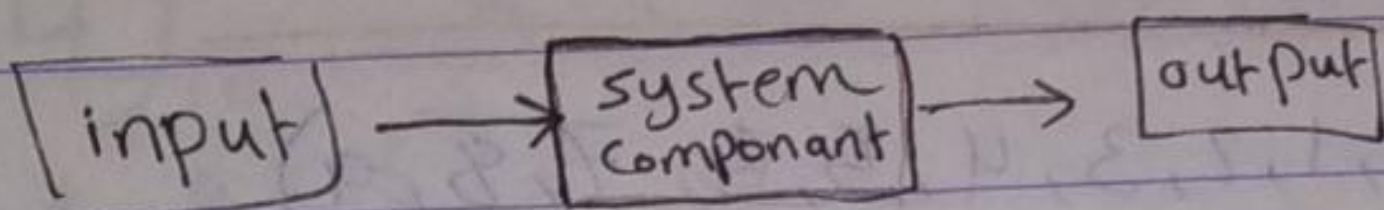 input
system
componant
output